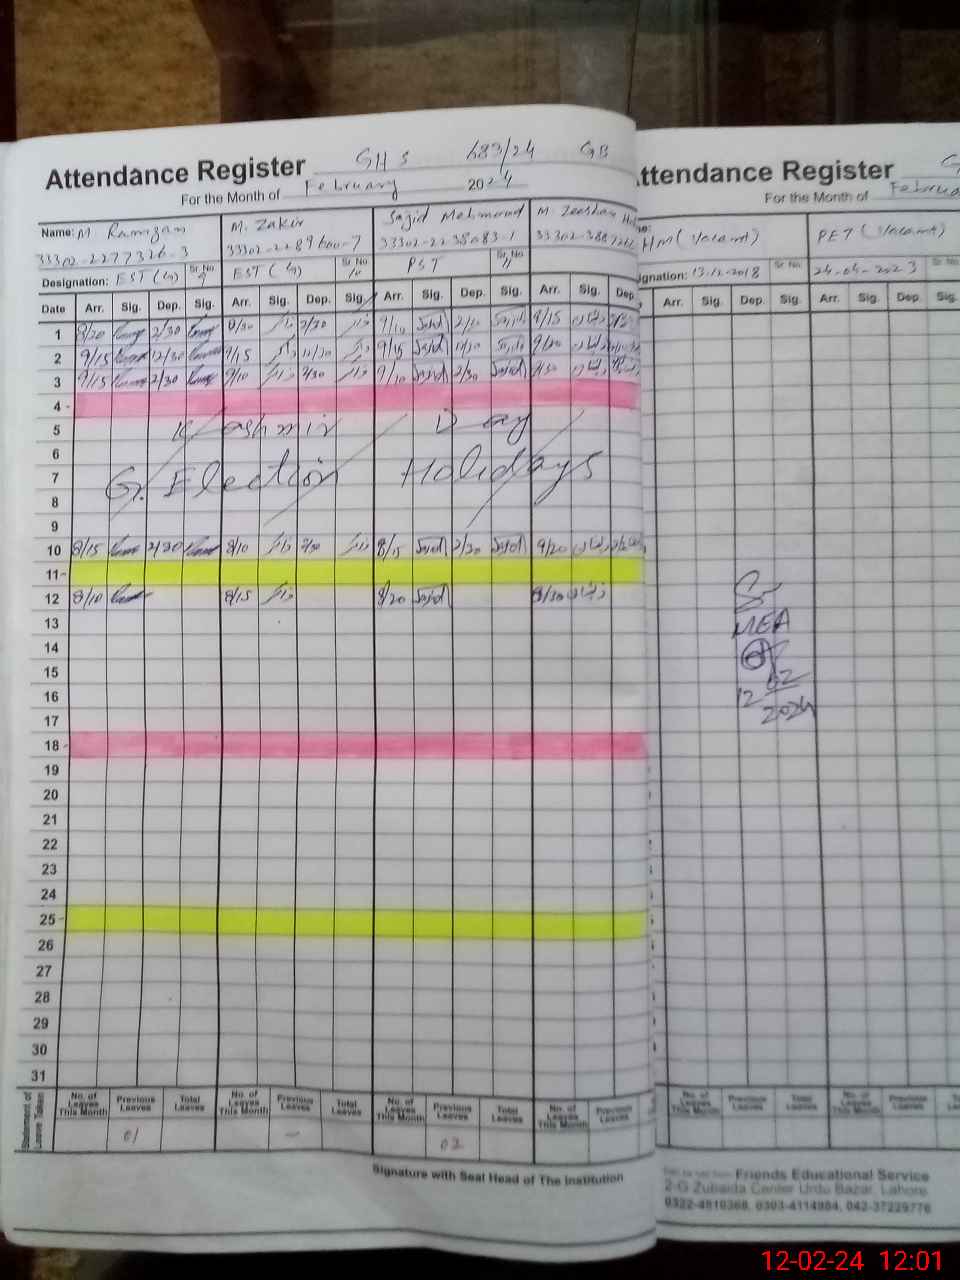 Attendance Register GHS 683/24 GB
For the Month of February 2024
Name: M Ramzan M. Zakir Sajid Mehmood M. Zeeshan
33302-2277326-3 33302-2289600-7 33302-2238083-1
Designation: EST Sr. No. 9 EST Sr. No. 10 PST Sr. No. 11
Date Arr. Sig. Dep. Sig. Arr. Sig. Dep. Sig. Arr. Sig. Dep. Sig. Arr. Sig. Dep.
1 8/20 2/30 8/30 2/30 9/10 Sajid 2/30 Sajid 8/15
2 9/15 12/30 9/15 12/30 9/15 Sajid Sajid 9/20
3 9/15 2/30 9/10 2/30 9/10 Sajid 2/30 Sajid
4
5 Kashmir Day
6
7 G. Election Holidays
8
9
10 8/15 2/30 8/10 2/30 8/15 Sajid 2/30 Sajid 9/20
11
12 8/10 8/15 8/20 Sajid 8/30
13
14
15
16
17
18
19
20
21
22
23
24
25
26
27
28
29
30
31
Statement of Leave Taken
No. of Leaves This Month Previous Leaves Total Leaves No. of Leaves This Month Previous Leaves Total Leaves No. of Leaves This Month Previous Leaves Total Leaves No. of Leaves This Month Previous Leaves
01 - 02
Signature with Seal Head of The Institution
ttendance Register G
For the Month of Februa
HM (Vacant) PET (Vacant)
signation: 13-12-2018 Sr. No. 24-04-2023 Sr. No.
Arr. Sig. Dep. Sig. Arr. Sig. Dep. Sig.
MEA
12
02
2024
No. of Leaves This Month Previous Leaves Total Leaves No. of Leaves This Month Previous Leaves
Friends Educational Service
2-G Zubaida Center Urdu Bazar, Lahore
0322-4810368, 0303-4114984, 042-37229776
12-02-24 12:01